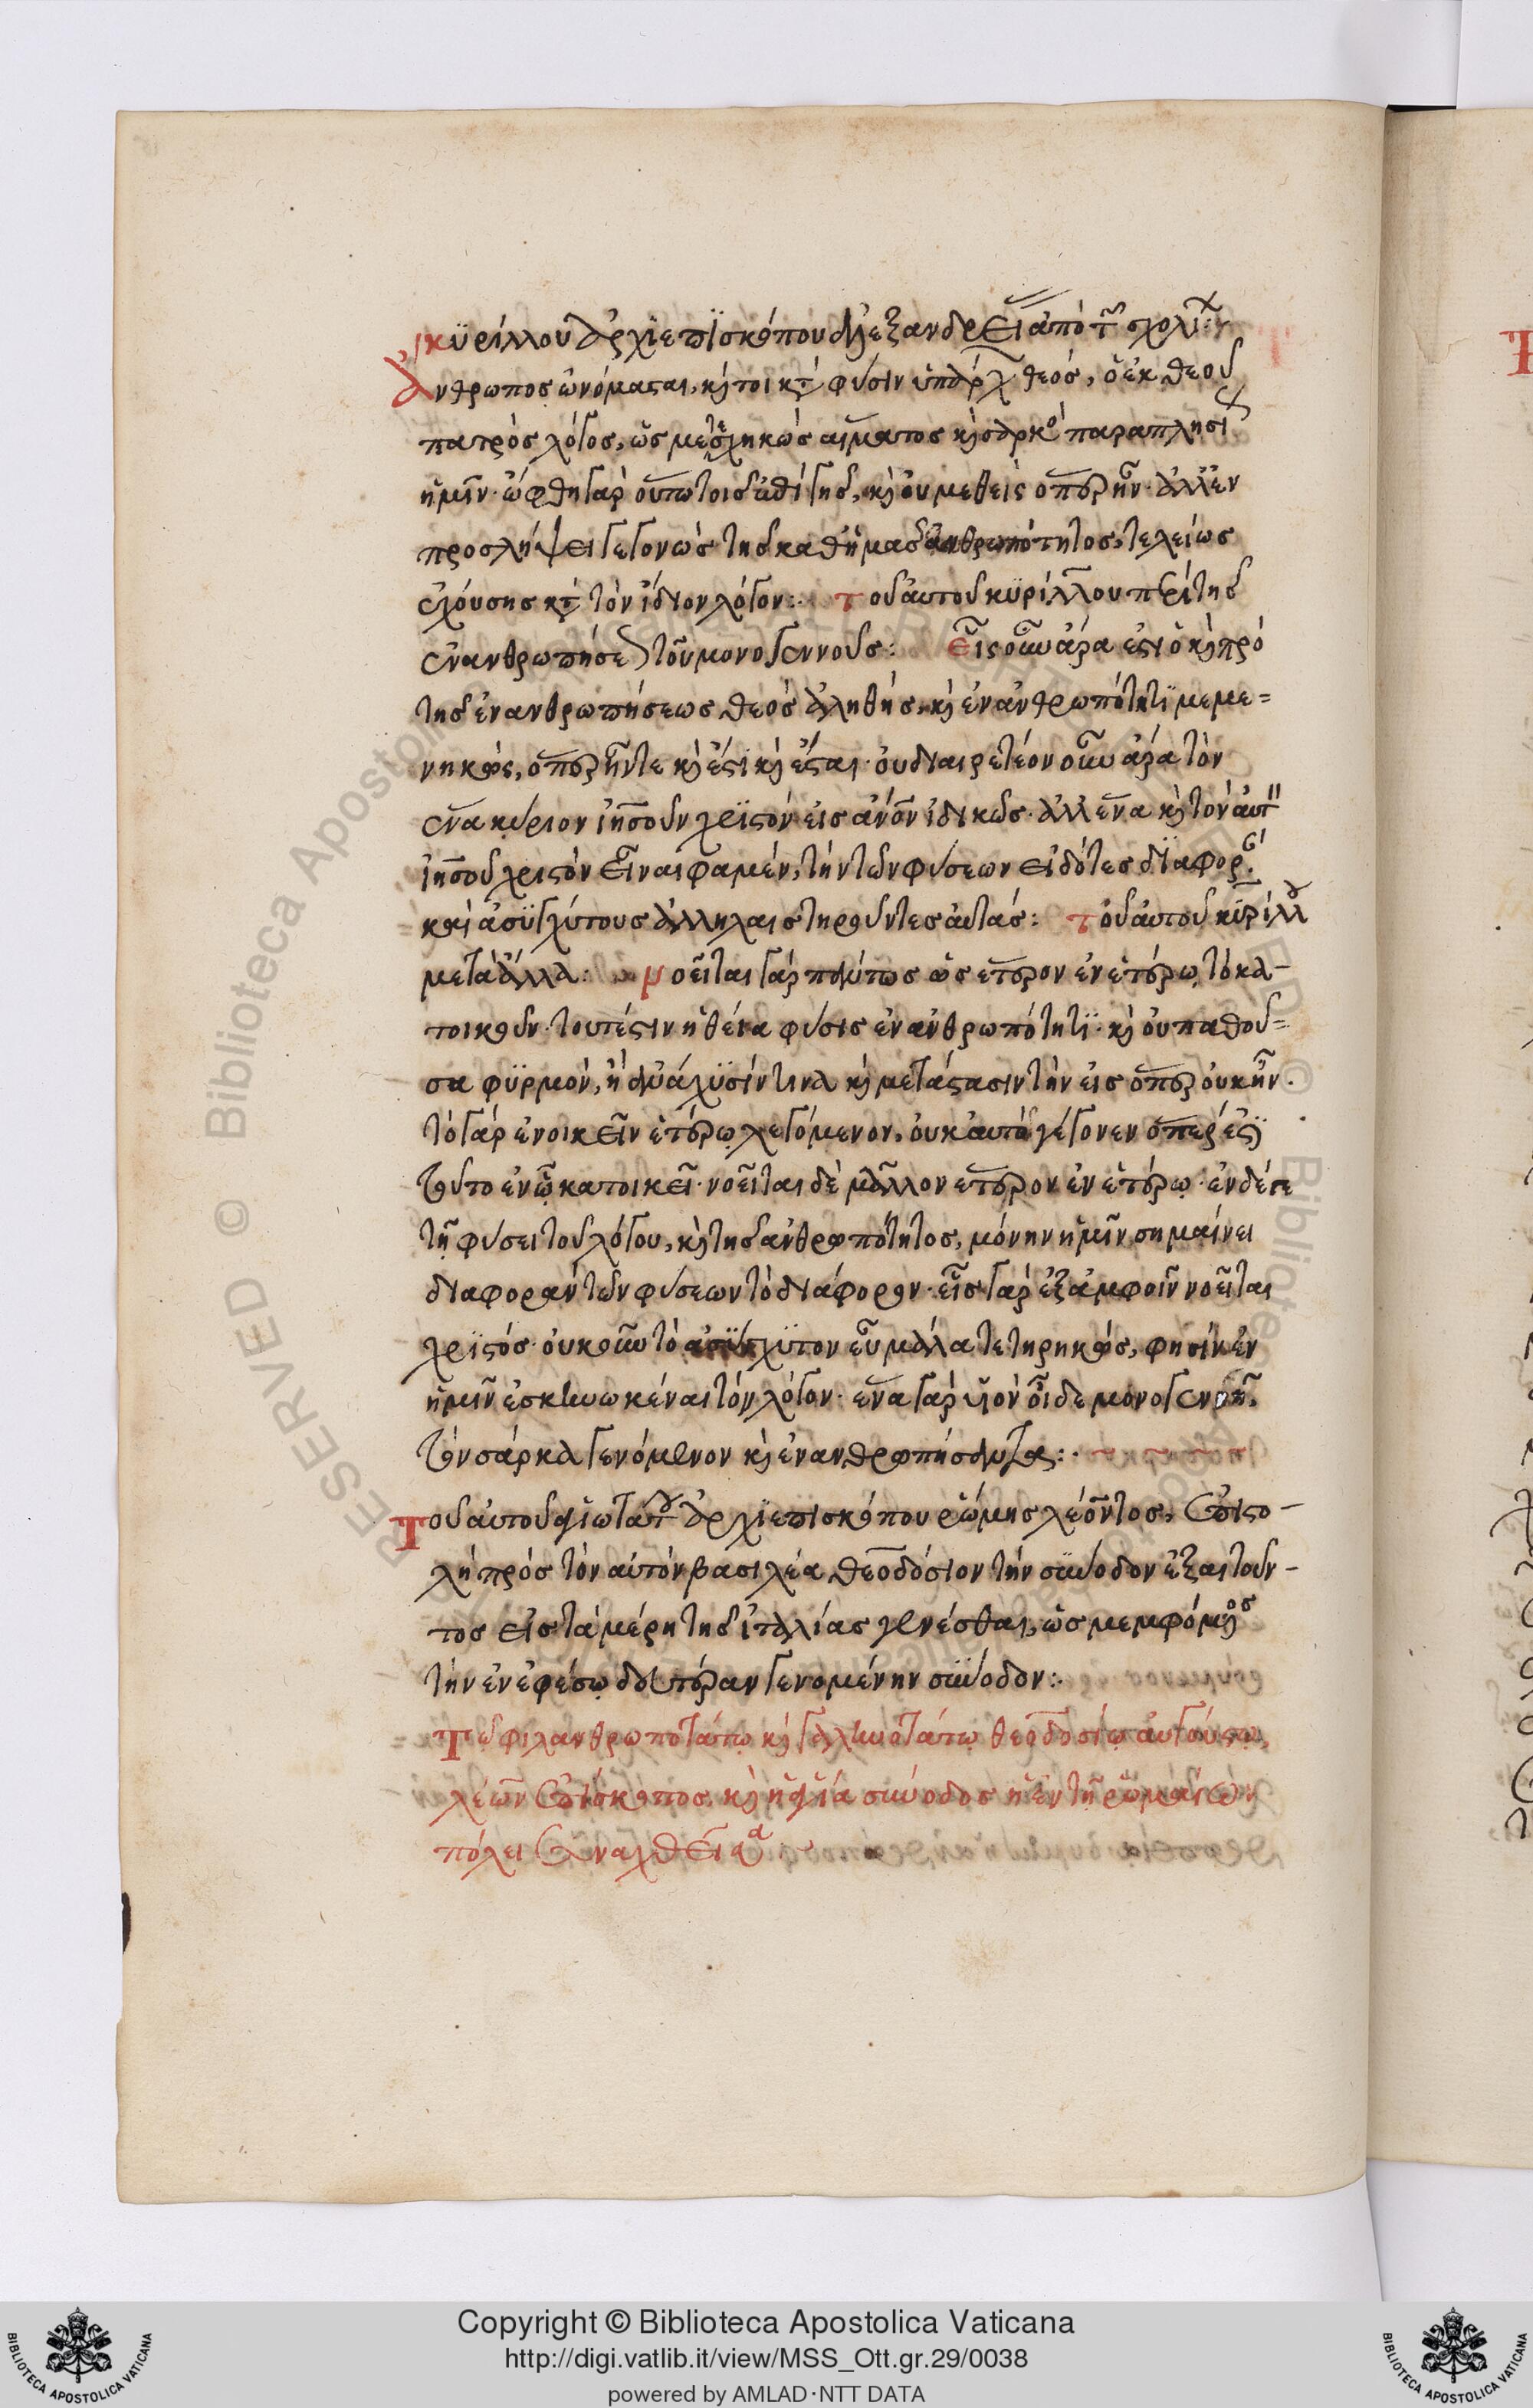 κϋρίλλου ἀρχϊεπϊσκόπου ἀλεξανδρεί ἀπὸ τ σχολί
Ἄνθρωπος ὠνόμασται, κỳ τοι κτ φύσιν ὑπάρχ θεὸς, ὁ ἐκ θεοῦ
πατρὸς λόγος, ὡς μετεσχηκὼς αἵματος κỳ σαρκὸ παραπλησί
ἡμῖν· ὤφθη γὰρ οὕτω τοῖς ἐπὶ γῆς, κỳ οὐ μεθεὶς ὅπερ ἦν· ἀλλ' ἐν
προσλήψει γεγονὼς τῆς καθ' ἡμᾶς ἀνθρωπότητος, τελείως
ἐχούσης κτ τὸν ἴδιον λόγον:· τοῦ αὐτοῦ κϋρίλλου περὶ τῆς
ἐνανθρωπήσε τοῦ μονογεννοῦς: Εἷς οὖν ἄρα ἐστὶ ὁ κỳ πρὸ
τῆς ἐνανθρωπήσεως θεὸς ἀληθὴς, κỳ ἐν ἀνθρωπότητϊ μεμε=
νηκὼς, ὅπερ ἦν τε κỳ ἐστὶ κỳ ἔσται· οὐ διαιρετέον οὖν ἄρα τὸν
ἕνα κύριον ἰησοῦν χρϊστὸν εἰς ἄνον ἰδικῶς· ἀλλ' ἕνα κỳ τὸν αὐτ
ἰησοῦ χριστὸν εἶναι φαμὲν, τὴν τῶν φύσεων εἰδότες δϊαφορ.
καὶ ἀσϋγχύτους ἀλλήλαις τηροῦντες αὐτάς: τοῦ αὐτοῦ κϋρίλλ
μετὰ ἄλλα: νοεῖται γὰρ πάντως ὡς ἕτερον ἐν ἑτέρῳ, τὸ κα-
τοικοῦν· τουτέστιν ἡ θεία φύσις ἐν ἀνθρωπότητϊ· κỳ οὐ παθοῦ=
σα φϋρμὸν, ἢ ἀνάχϋσίν τινα κỳ μετάστασιν τὴν εἰς ὅπερ οὐκ ἦν.
τὸ γὰρ ἐνοικεῖν ἑτέρῳ λεγόμενον, οὐκ αὐτὸ γέγονεν ὅπερ ἐστϊ
τοῦτο ἐν ᾧ κατοικεῖ· νοεῖται δὲ μᾶλλον ἕτερον ἐν ἑτέρῳ· ἐν δέ γε
τῇ φύσει τοῦ λόγου, κỳ τῆς ἀνθρωπότητος, μόνην ἡμῖν σημαίνει
διαφορὰν τῶν φύσεων τὸ διάφορον· εἷς γὰρ ἐξ ἀμφοῖν νοεῖται
χρϊστὸς· οὐκοῦν τὸ ἀσϋγχϋτον εὖ μάλα τετηρηκὼς, φησὶν ἐν
ἡμῖν ἐσκηνωκέναι τὸν λόγον· ἕνα γὰρ υἱὸν οἶδε μονογενῆ
τὸν σάρκα γενόμενον κỳ ἐνανθρωπήσαντα:·
Τοῦ αὐτοῦ ἁγιωτάτ ἀρχϊεπισκόπου ῥώμης λέοντος, ἐπιστο-
λὴ πρὸς τὸν αὐτὸν βασιλέα θεοδόσιον τὴν σύνοδον ἐξαιτοῦν-
τος εἰς τὰ μέρη τῆς ἰταλίας γενέσθαι, ὡς μεμφόμς
τὴν ἐν ἐφέσῳ δευτέραν γενομένην σύνοδον:·
Τῷ φιλανθρωποτάτῳ κỳ γαληνοτάτῳ θεοδοσίῳ αὐγούστῳ,
λέων ἐπίσκοπος, κỳ ἡ ἁγία σύνοδος ἡ ἐν τῇ ῥωμαίων
πόλει συναχθεῖσα·
Copyright © Biblioteca Apostolica Vaticana
http://digi.vatlib.it/view/MSS_Ott.gr.29/0038
powered by AMLAD·NTT DATA
BIBLIOTECA APOSTOLICA VATICANA
BIBLIOTECA APOSTOLICA VATICANA